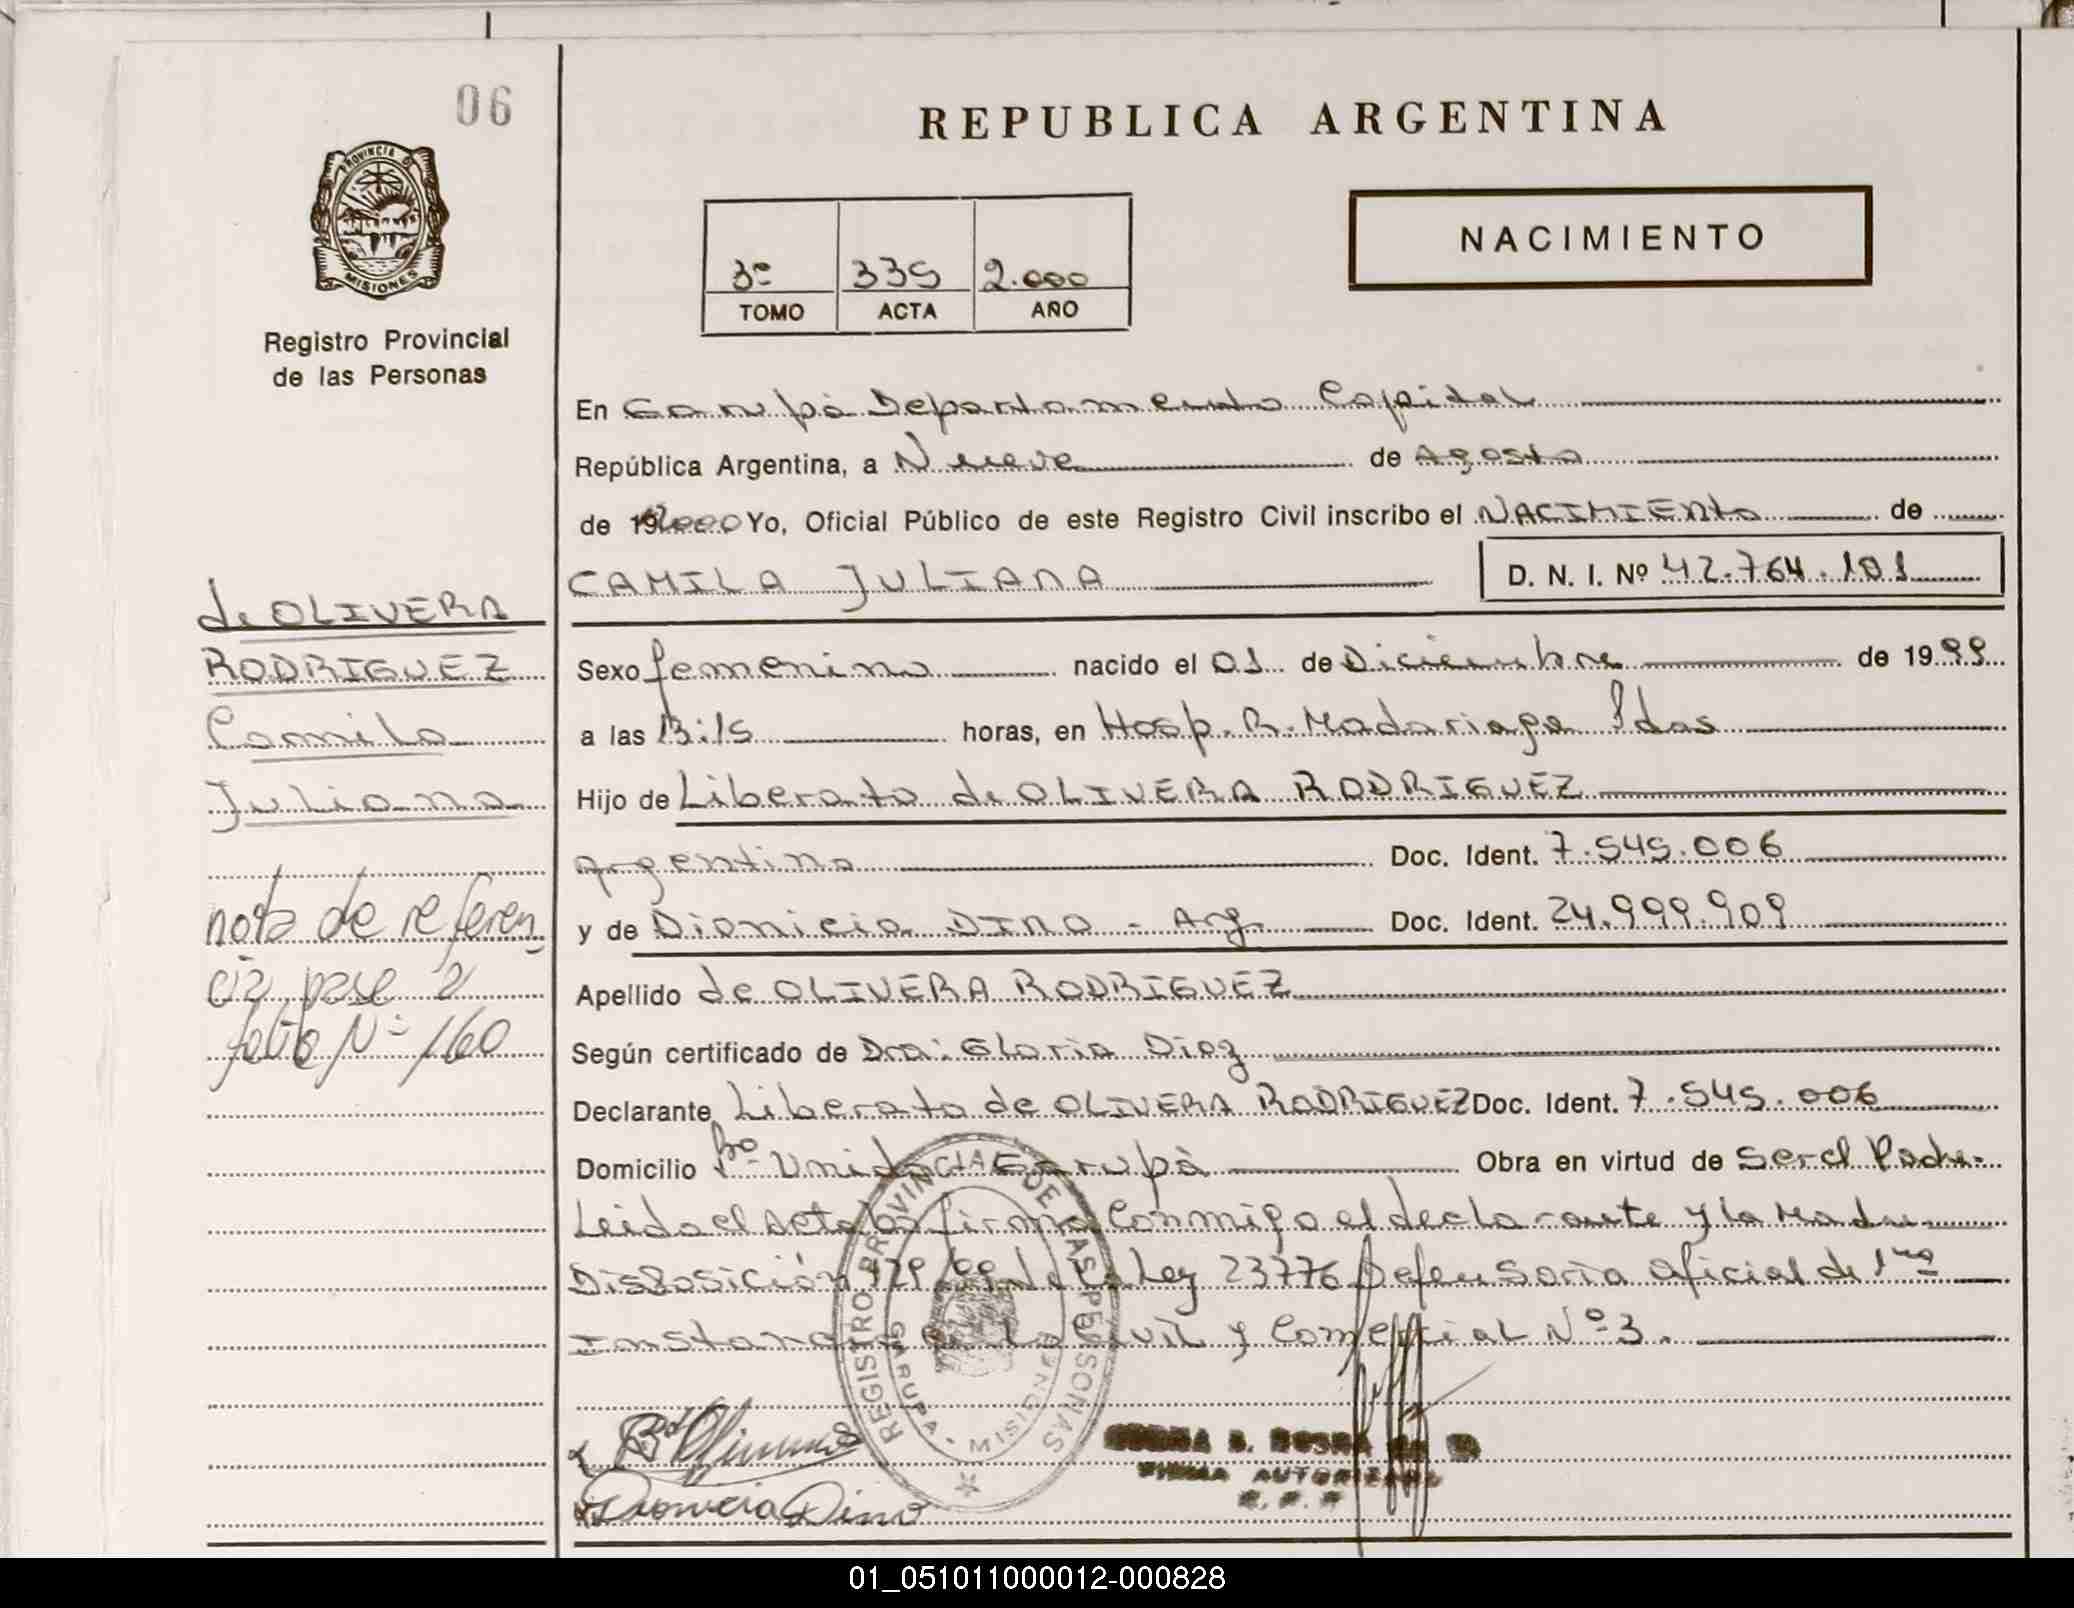 06
REPUBLICA ARGENTINA
PROVINCIA D
MISIONES
Registro Provincial
de las Personas
3º 335 2.000
TOMO ACTA AÑO
NACIMIENTO
En Garupá Departamento Capital
República Argentina, a Nueve de Agosto
de 19 2000 Yo, Oficial Público de este Registro Civil inscribo el NACIMIENto de
CAMILA JULIANA D. N. I. Nº 42.764.101
de OLIVERA
RODRIGUEZ
Camila
Juliana
nota de referen
cia pase a
folio Nº 160
Sexo femenino nacido el 01 de Diciembre de 1999
a las 13:15 horas, en Hosp. R. Madariaga Pdas
Hijo de Liberato de OLIVERA RODRIGUEZ
Argentino Doc. Ident. 7.545.006
y de Dionicia DINO - Arg. Doc. Ident. 24.999.909
Apellido de OLIVERA RODRIGUEZ
Según certificado de Dra: Gloria Diez
Declarante Liberato de OLIVERA RODRIGUEZ Doc. Ident. 7.545.006
Domicilio Bº Unida Garupá Obra en virtud de ser el Padre
Leida el acta la firma conmigo el declarante y la Madre
Disposición 129/99 Ley 23776 Defensoría Oficial de 1ra
Instancia Civil y Comercial Nº 3.
REGISTRO PROVINCIAL DE LAS PERSONAS
GARUPA - MISIONES
Dionicia Dino
FIRMA AUTORIZADA
R. P. P
01_051011000012-000828